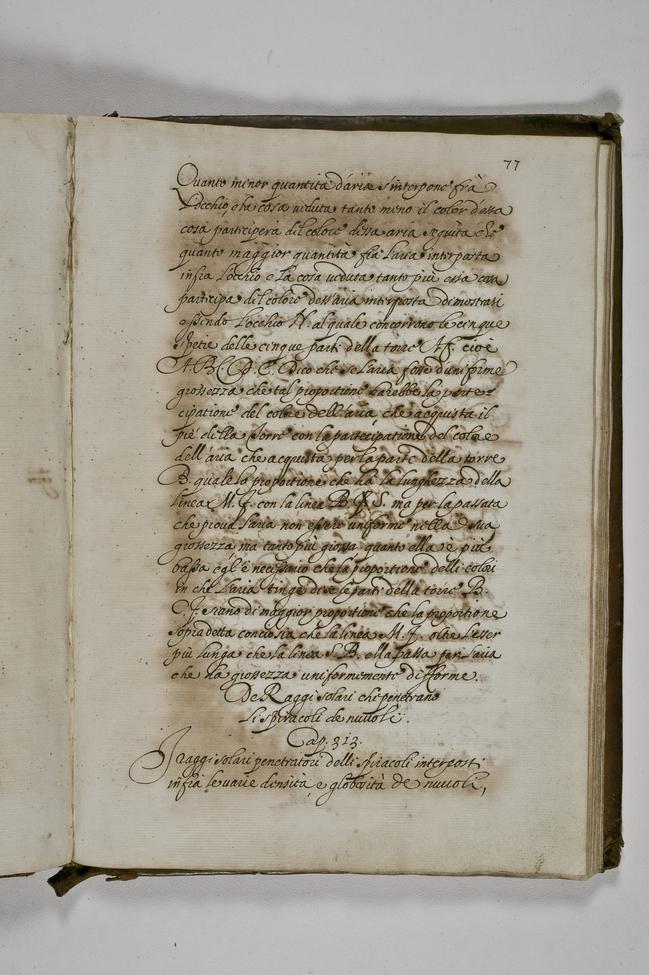 77
Quanto menor quantità d'aria s'interpone frà
L'occhio, e la cosa veduta tanto meno il color d'essa
cosa participera del colore d'essa aria seguita che
quanto maggior quantità fia l'aria interposta
infra l'occhio e la cosa veduta, tanto più essa cosa
participa del colore dell'aria interposta dimostrasi
essendo l'occhio N. al quale concorrono le cinque
spetie delle cinque parti della torre A.f. cioè
A.B.C.D.E. Dico che se l'aria fosse d'uniforme
grossezza che tal proportione harebbe la parte=
cipatione del colore dell'aria che acquista il
piè della torre con la partecipatione del colore
dell'aria che acquista per la parte della torre
B. quale la proportione che hà la lunghezza della
linea M.f. con la linea B. S. ma per la passata
che prova l'aria non essere uniforme nella sua
grossezza ma tanto più grossa quanto ella è più
bassa egl'è necessario che la proportione delli colori
in che l'aria tinge di se le parti della torre B.
f. siano di maggior proportione che la proportione
sopradetta conciosia che la linea M.f. oltre l'esser
più lunga che la linea S.B. ella passa per l'aria
che ha grossezza uniformemente difforme.
De Raggi solari che penetrano
li spiracoli de nuvoli.
Cap. 313.
I raggi solari penetratori delli spiracoli interposti
infra le varie densità, e globosità de nuvoli,